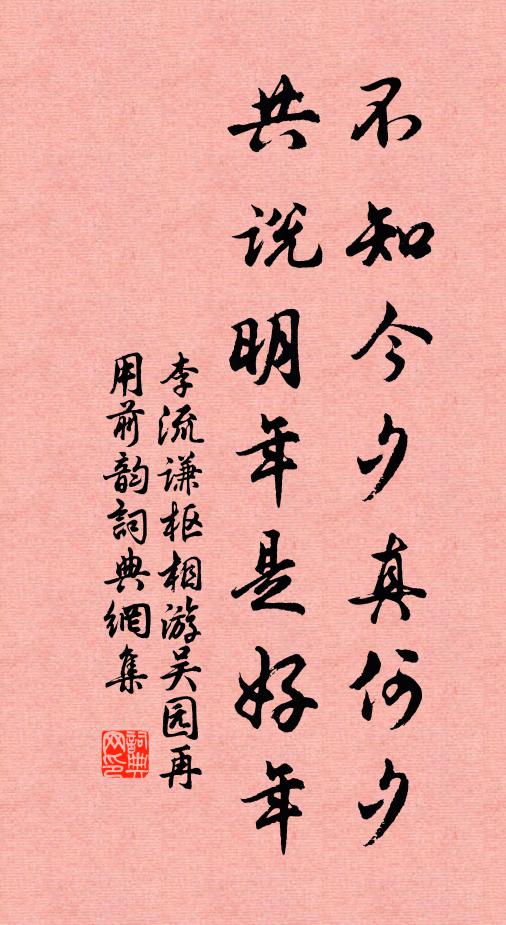 不知今夕真何夕
共说明年是好年
李流谦枢相游吴园再
用前韵詞典網集
詞典网印